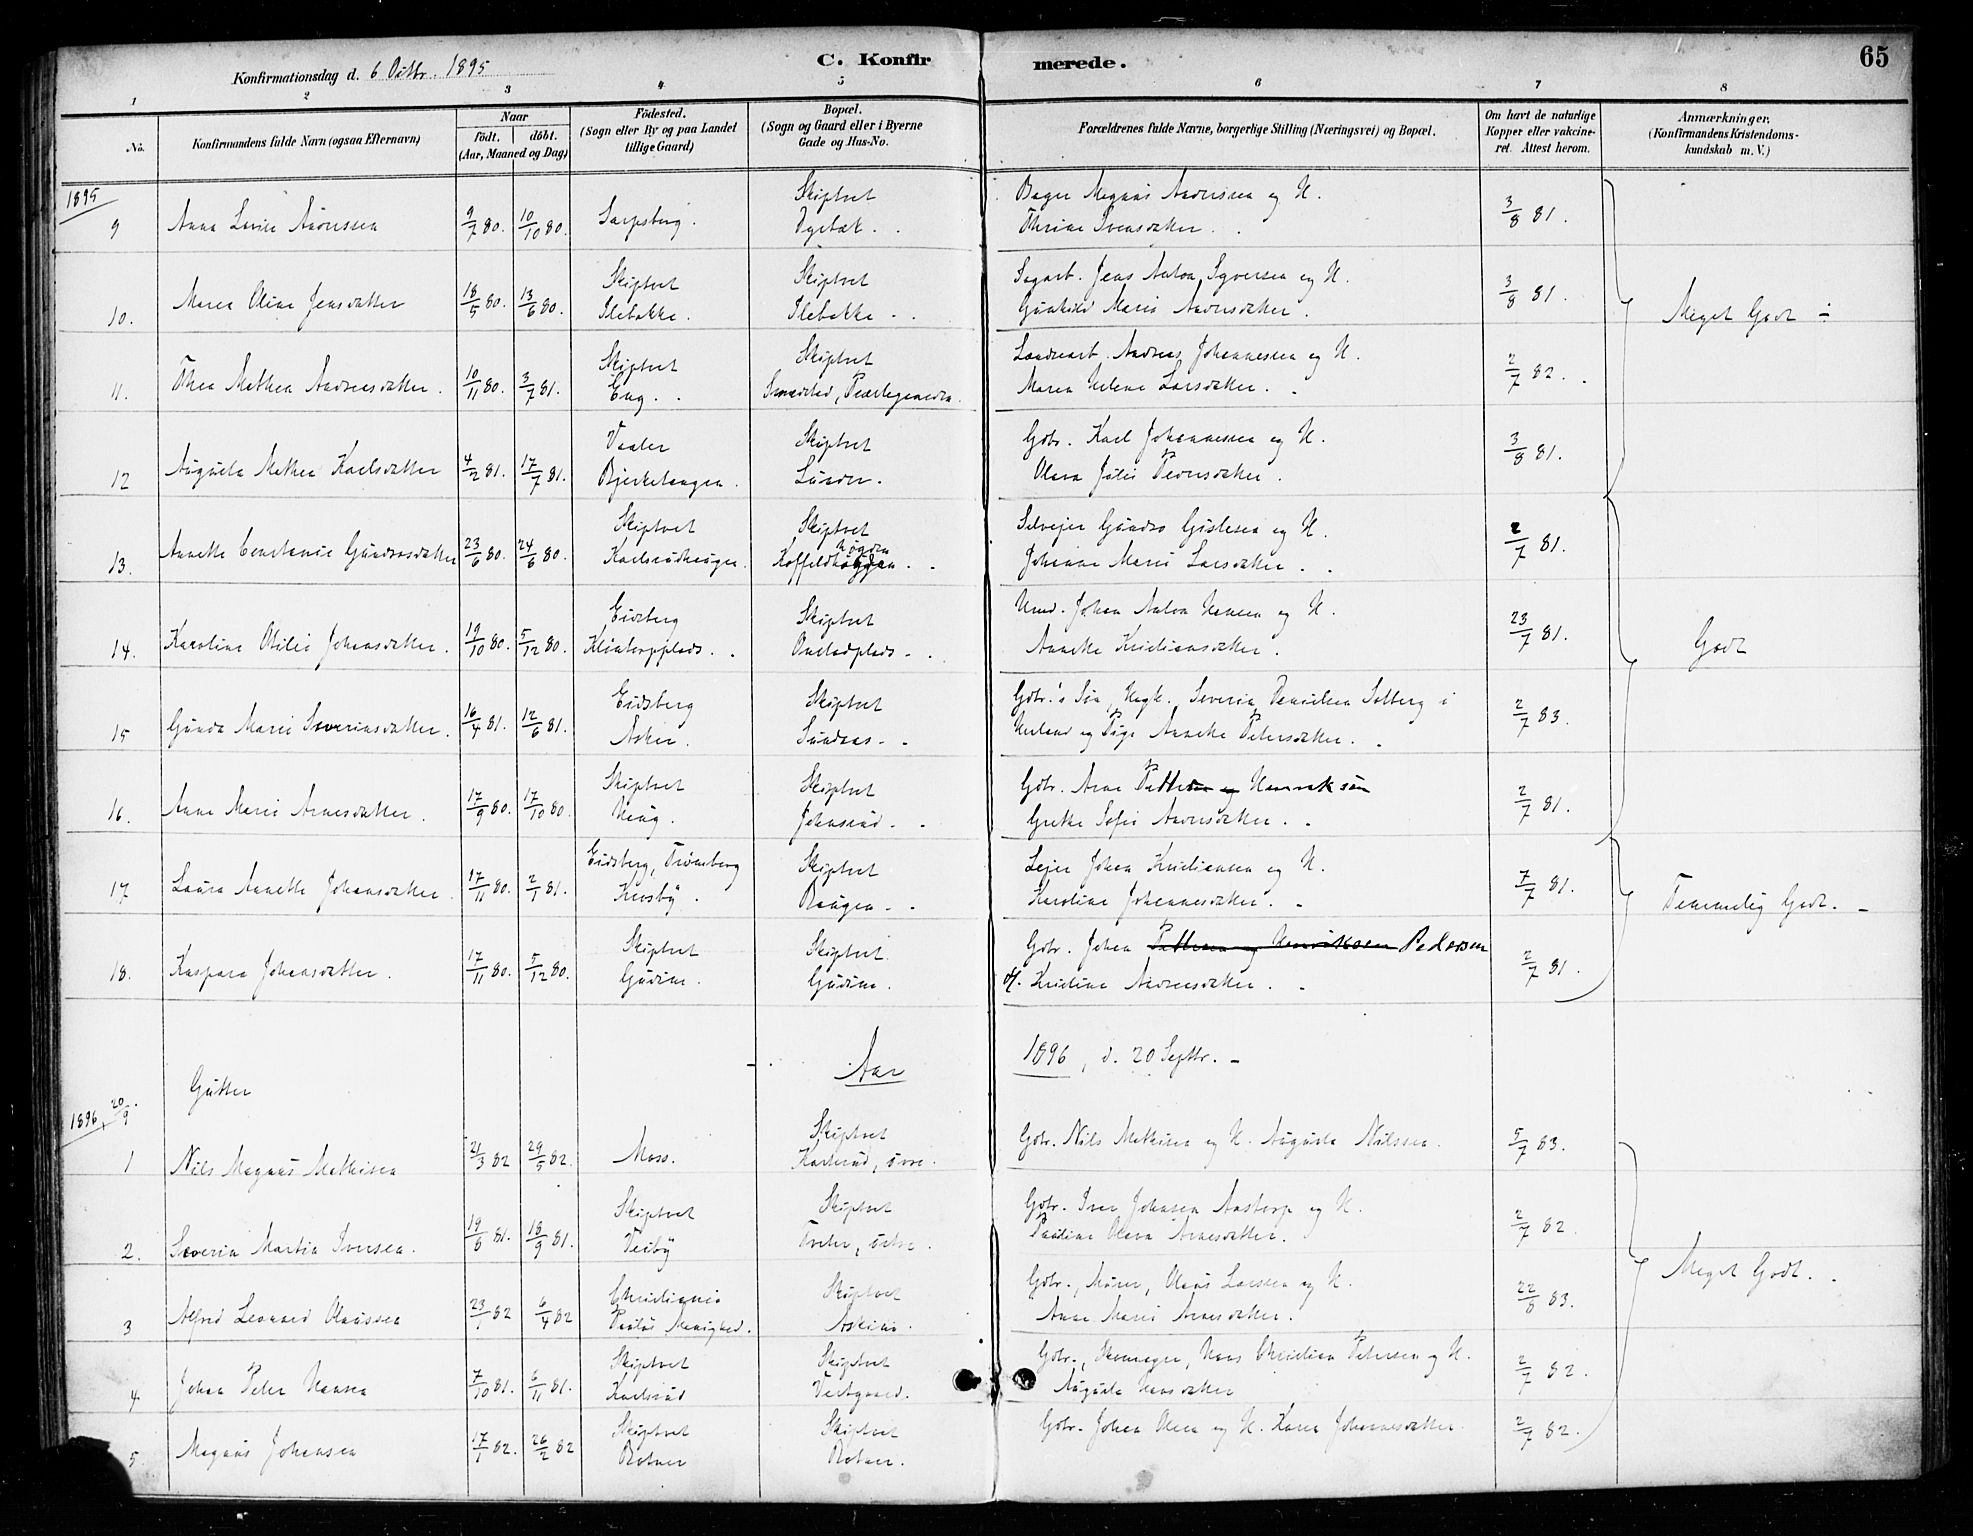 Konfirmationsdag d. 6 Octbr. 1895
C. Konfirmerede.
65
1 2 3 4 5 6 7 8
No.
Konfirmandens fulde Navn (ogsaa Efternavn)
Naar
födt. döbt.
(Aar, Maaned og Dag)
Födested.
(Sogn eller By og paa Landet
tillige Gaard)
Bopæl.
(Sogn og Gaard eller i Byerne
Gade og Hus-No.
Forældrenes fulde Navne, borgerlige Stilling (Næringsvei) og Bopæl.
Om havt de naturlige
Kopper eller vakcine-
ret. Attest herom.
Anmærkninger.
(Konfirmandens Kristendoms-
kundskab m. V.)
1895
9 Anna Andersen 9/7 80. 10/10 80. Sarpsborg. Skiptvet
Bager Magnus Andersen og H.
Thrine Svensdatter. 3/8 81.
10. Maren Oline Jensdatter 18/5 80. 13/6 80. Skiptvet Ilebakke. Skiptvet Ilebakke
Sagarb. Jens Anton Syversen og H.
Gunhild Marie Andersdatter. 3/8 81.
Meget Godt
11. Thea Mathea Andreasdatter. 10/11 80. 3/7 81. Skiptvet Eng. Skiptvet
Andreas Johannessen og H.
Maren Helene Larsdatter. 2/7 82.
12 Augusta Mathea Karlsdatter 4/2 81. 17/7 81. Vaaler Bjerketangen. Skiptvet Lunder.
Gbr. Karl Johannessen og H.
Olava Julie Pedersdatter. 3/8 81.
13. Annette Constance Gundrosdatter 23/6 80. 24/6 80. Skiptvet Karlsrudhaugen Skiptvet
Selvejer Gundro Gislesen og H.
Johanne Marie Larsdatter. 2/7 81.
14. Karoline Otilie Johansdatter. 19/10 80. 5/12 80. Eidsberg Klintorpplads. Skiptvet Onstadplads
Johan Anton Hansen og H.
Annette Kristiansdatter. 23/7 81.
Godt
15 Gunda Marie Severinsdatter. 16/4 81. 12/6 81. Eidsberg Asker. Skiptvet Sundaas
Gbr.'s Søn, Ungk. Severin Solberg i
Herland og Pige Annette Petersdatter. 2/7 83.
16. Anne Marie Arnesdatter. 17/9 80. 17/10 80. Skiptvet Haug. Skiptvet Johnsrud
Gbr. Arne Henriksen
Grethe Sofie Andersdatter. 2/7 81.
17 Laura Annette Johansdatter. 17/11 80. 2/1 81. Eidsberg, Trömborg Krosby. Skiptvet Haugen
Lejer Johan Kristiansen og H.
Karoline Johannesdatter. 7/7 81.
Temmelig Godt.
18. Kaspara Johansdatter. 17/11 80. 5/12 80. Skiptvet Gudim. Skiptvet Gudim.
Gbr. Johan Pedersen
og H. Kristine Andreasdatter. 2/7 81.
Aar 1896, d. 20 Septbr.
Gutter
1896, 20/9.
1 Nils Magnus Mathisen 21/3 82 29/5 82. Moss. Skiptvet Karlsrud, övre.
Gbr. Nils Mathisen og H. Augusta Nilssen. 5/7 83.
2. Severin Martin Iversen. 19/8 81. 18/9 81. Skiptvet Vesby Skiptvet
Gbr. Iver Johansen Aastorp og H.
Pauline Olava Arnesdatter. 2/7 82.
3 Alfred Leonard Olaussen 23/1 82 6/4 82 Christiania Paulus Menighed. Skiptvet Askim.
Gbr., Murer, Olaus Larssen og H.
Anne Marie Arnesdatter. 22/8 83.
Meget Godt.
4 Johan Peter Hansen 7/10 81. 6/11 81. Skiptvet Karlsrud Skiptvet Vestgaard.
Gbr., Skomager, Hans Christian Petersen og H.
Augusta Hansdatter 2/7 82.
5. Magnus Johansen 17/1 82. 26/2 82 Skiptvet Rotner Skiptvet Rotner.
Gbr. Johan Olsen og H. Karen Johannesdatter. 2/7 82.